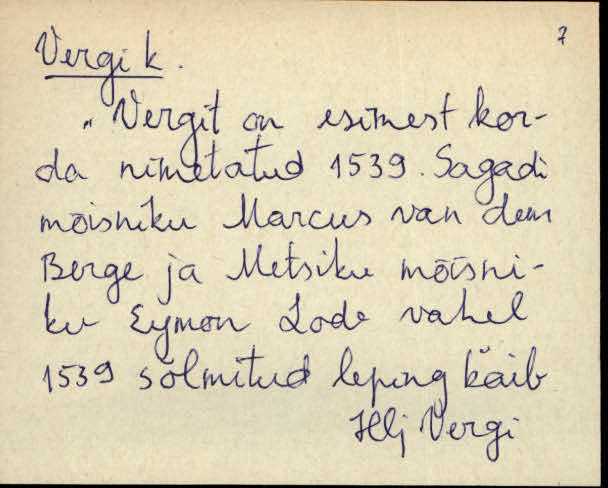 7
Vergi k.
„Vergit on esimest kor-
da nimetatud 1539. Sagadi
mõisniku Marcus van dem
Berge ja Metsiku mõisni-
ku Eymon Lode vahel
1539 sõlmitud leping käib
Hlj Vergi